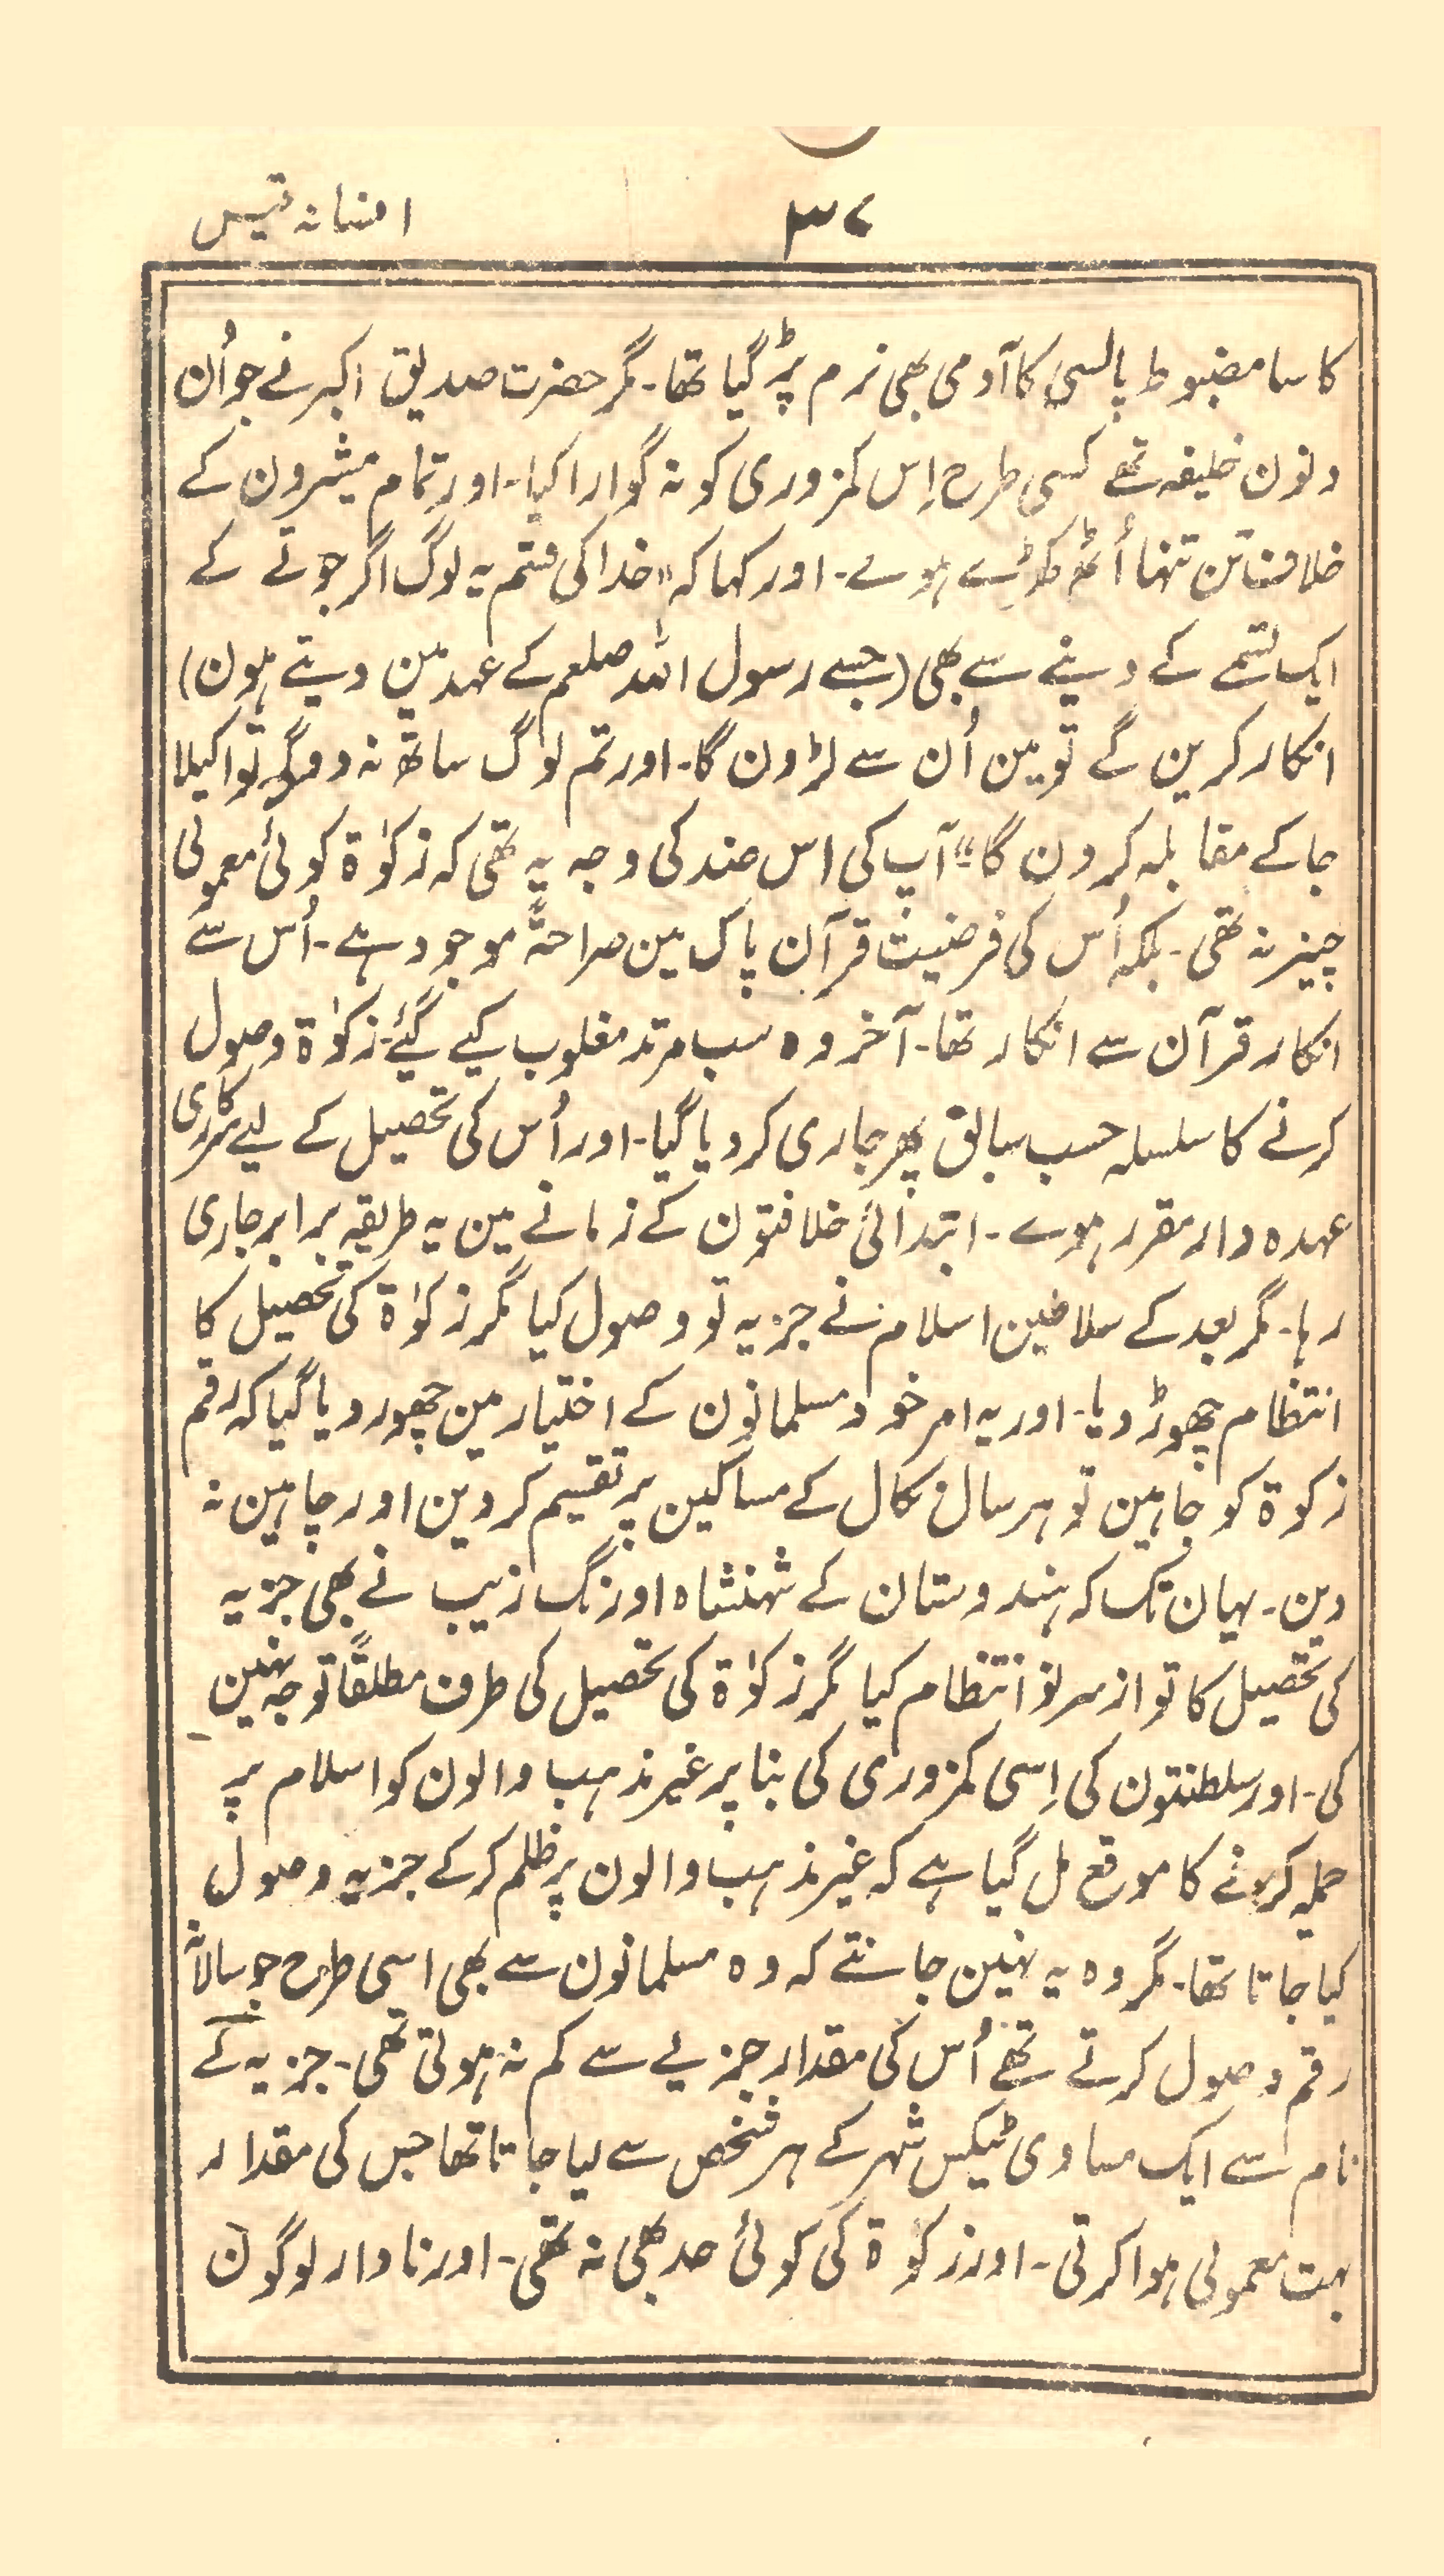 ۳۷ افسانہ قیس
کا سا مضبوط پالسی کا آدمی بھی نرم پڑ گیا تھا۔ مگر حضرت صدیق اکبر نے جو اُن
دنون خلیفہ تھے کسی طرح اِس کمزوری کو نہ گوارا کیا۔ اور تمام مشیرون کے
خلاف تن تنہا اُٹھ کھڑے ہوے۔ اور کہا کہ "خدا کی قسم یہ لوگ اگر جوتے کے
ایک تسمے کے دینے سے بھی (جسے رسول اللہ صلعم کے عہد مین دیتے ہون)
انکار کرین گے تو مین اُن سے لڑون گا۔ اور تم لوگ ساتھ نہ دو گے تو اکیلا
جا کے مقابلہ کرون گا" آپ کی اس ضد کی وجہ یہ تھی کہ زکوٰۃ کوئی معمولی
چیز نہ تھی۔ بلکہ اُس کی فرضیت قرآن پاک مین صراحۃً موجود ہے۔ اُس سے
انکار قرآن سے انکار تھا۔ آخر وہ سب مرتد مغلوب کیے گئے۔ زکوٰۃ وصول
کرنے کا سلسلہ حسب سابق پھر جاری کر دیا گیا۔ اور اُس کی تحصیل کے لیے سرکاری
عہدہ دار مقرر ہوے۔ ابتدائی خلافتون کے زمانے مین یہ طریقہ برابر جاری
رہا۔ مگر بعد کے سلاطین اسلام نے جزیہ تو وصول کیا مگر زکوٰۃ کی تحصیل کا
انتظام چھوڑ دیا۔ اور یہ امر خود مسلمانون کے اختیار مین چھوڑ دیا گیا کہ رقم
زکوۃ کو چاہین تو ہر سال نکال کے مساکین پر تقسیم کر دین اور چاہین نہ
دین۔ یہان تک کہ ہندوستان کے شہنشاہ اورنگ زیب نے بھی جزیہ
کی تحصیل کا تو از سر نو انتظام کیا مگر زکوٰۃ کی تحصیل کی طرف مطلقاً توجہ نہین
کی۔ اور سلطنتون کی اِسی کمزوری کی بنا پر غیر مذہب والون کو اسلام پر
حملہ کرنے کا موقع مل گیا ہے کہ غیر مذہب والون پر ظلم کر کے جزیہ وصول
کیا جاتا تھا۔ مگر وہ یہ نہین جانتے کہ وہ مسلمانون سے بھی اسی طرح جو سالانہ
رقم وصول کرتے تھے اُس کی مقدار جزیے سے کم نہ ہوتی تھی۔ جزیہ کے
نام سے ایک مساوی ٹیکس شہر کے ہر شخص سے لیا جاتا تھا جس کی مقدار
بہت معمولی ہوا کرتی۔ اور زکوٰۃ کی کوئی حد بھی نہ تھی۔ اور نادار لوگون